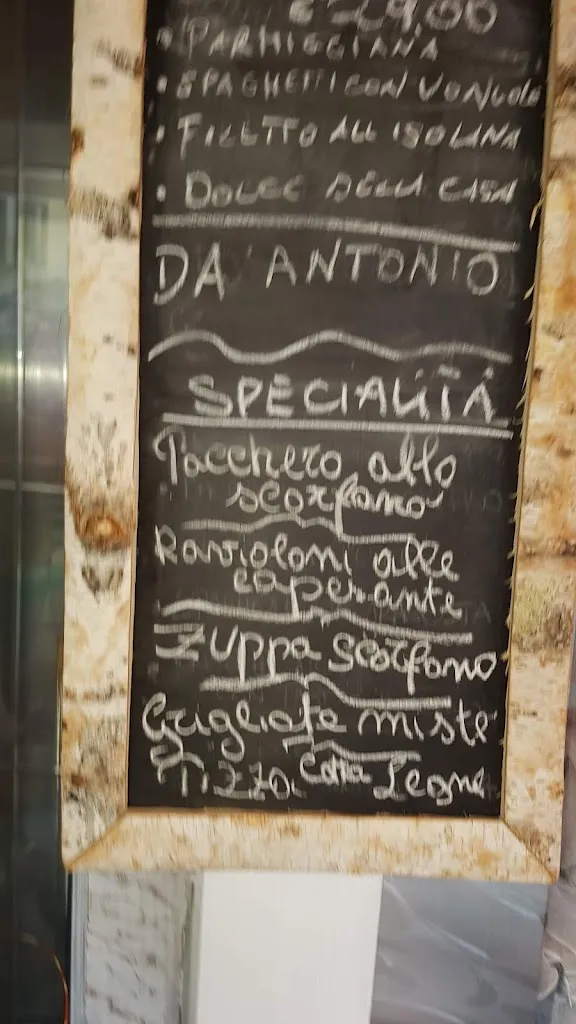 € 29,00
• PARMIGGIANA
• SPAGHETTI CON VONGOLE
• FILETTO ALL ISOLANA
• DOLCE DELLA CASA
DA ANTONIO
SPECIALITÀ
Pacchero allo
scorfano
Ravioloni alle
caperante
ZUPPA SCORFANO
Grigliate miste
PIZZA Cotta Legna